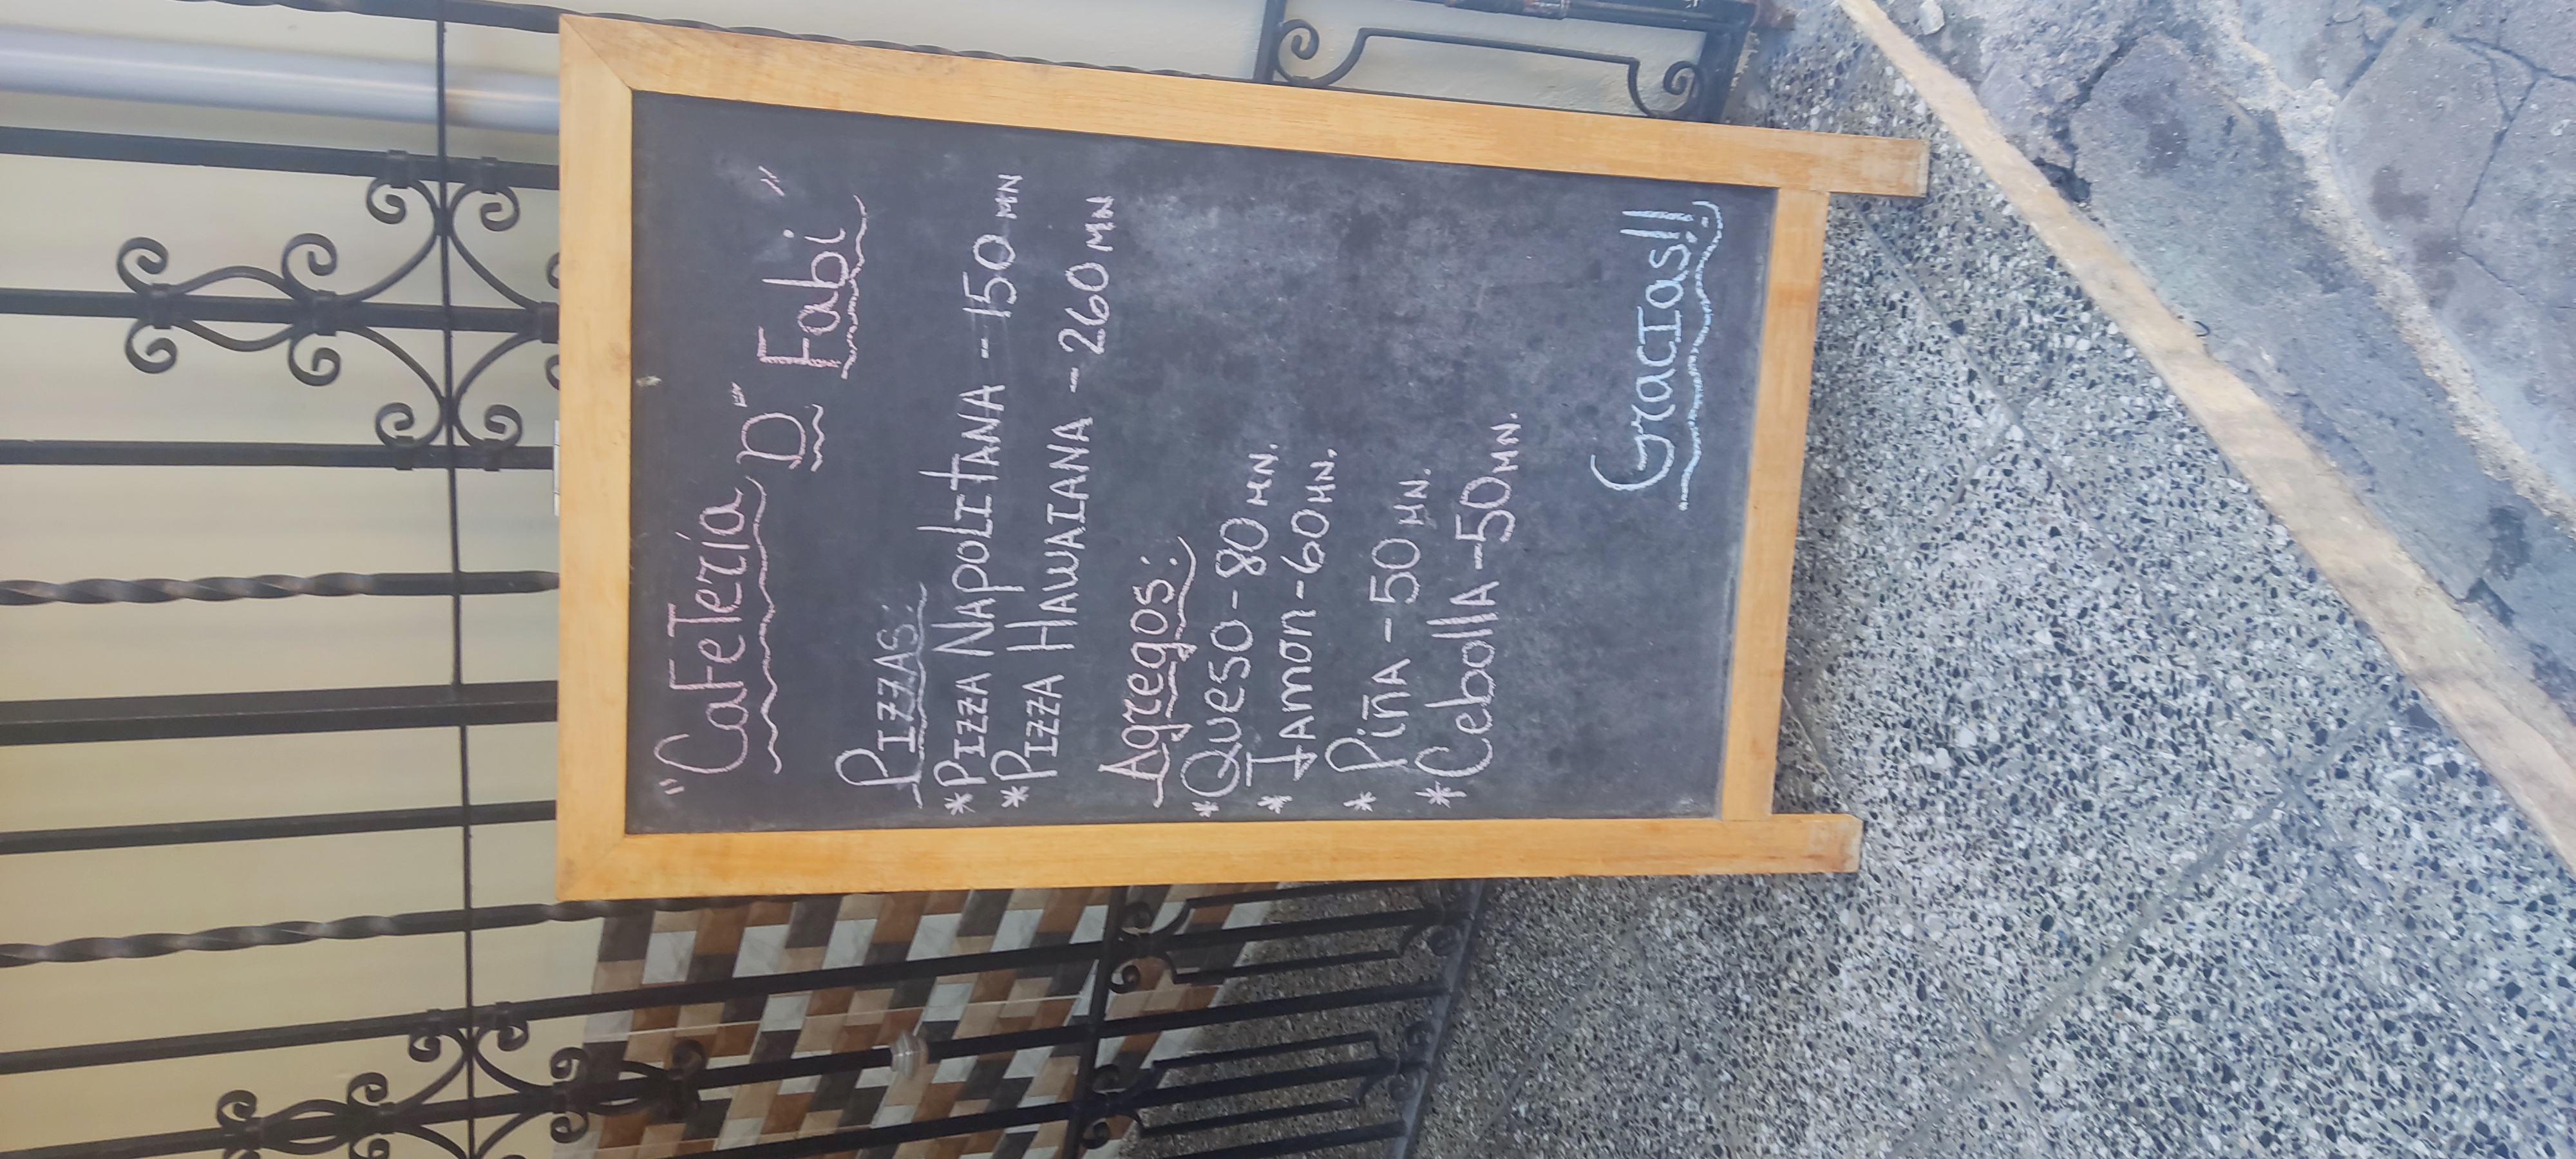 "CaFeTería
D" Fabi"
PIZZAS:
*PIZZA NApOLItANA - 150 MN
*PIZZA HAWAIANA - 260 MN
Agregos:
*Queso - 80 MN.
*JAmon - 60 MN.
*PiñA - 50 MN.
*CebollA - 50 MN.
GracIas!!